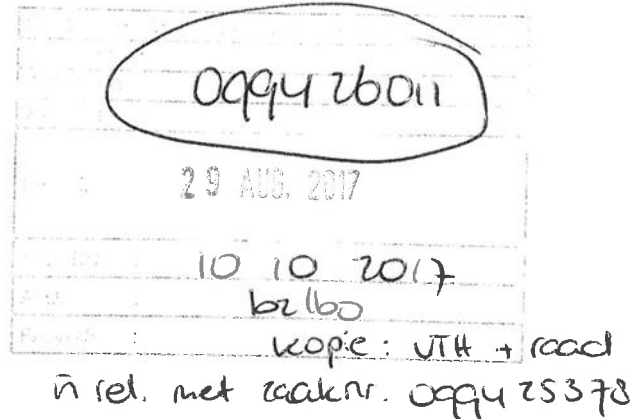 0994 26011
29 AUG. 2017
10 10 2017
bz/bo
kopie: VTH + raad
in rel. met zaaknr. 0994 25378